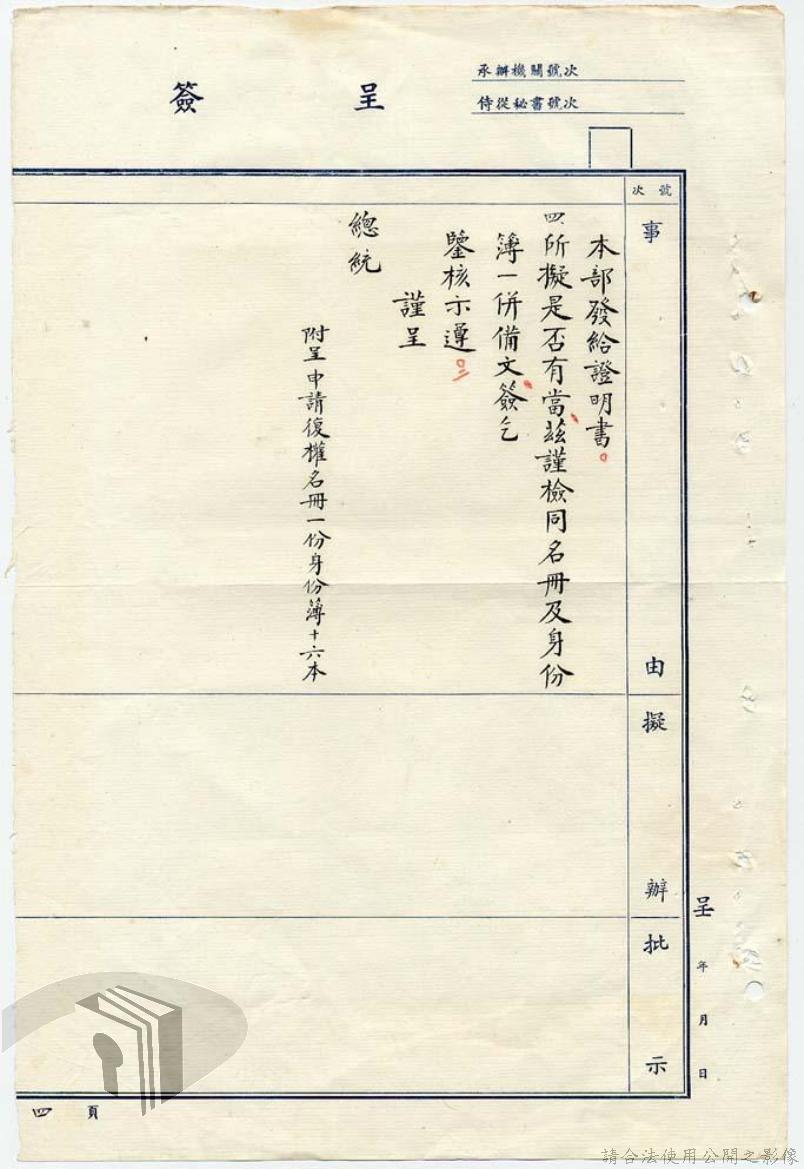 承辦機關號次
侍從秘書號次
簽呈
號次
事由
擬辦
批示
本部發給證明書。
四、所擬是否有當茲謹檢同名冊及身份
簿一併備文簽乞
鑒核示遵。
謹呈
總統
附呈申請復權名冊一份身份簿十六本
呈 年 月 日
四頁
請合法使用公開之影像